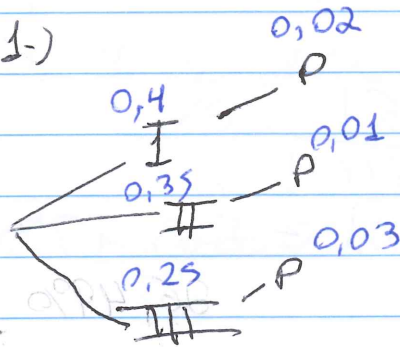 1-)
0,02
P
0,4
I
0,01
P
0,35
II
0,03
P
0,25
III